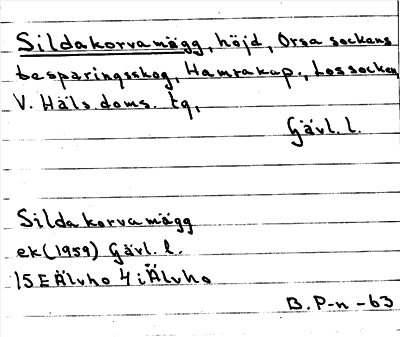 Sildakorvamägg, höjd, Orsa sockens
besparingsskog, Hamra kap., Los socken,
V. Häls. doms. tq,
Gävl. l.
Silda korvamägg
ek (1959) Gävl. l.
15E Älvho 4 i Älvho
B. P-n -63